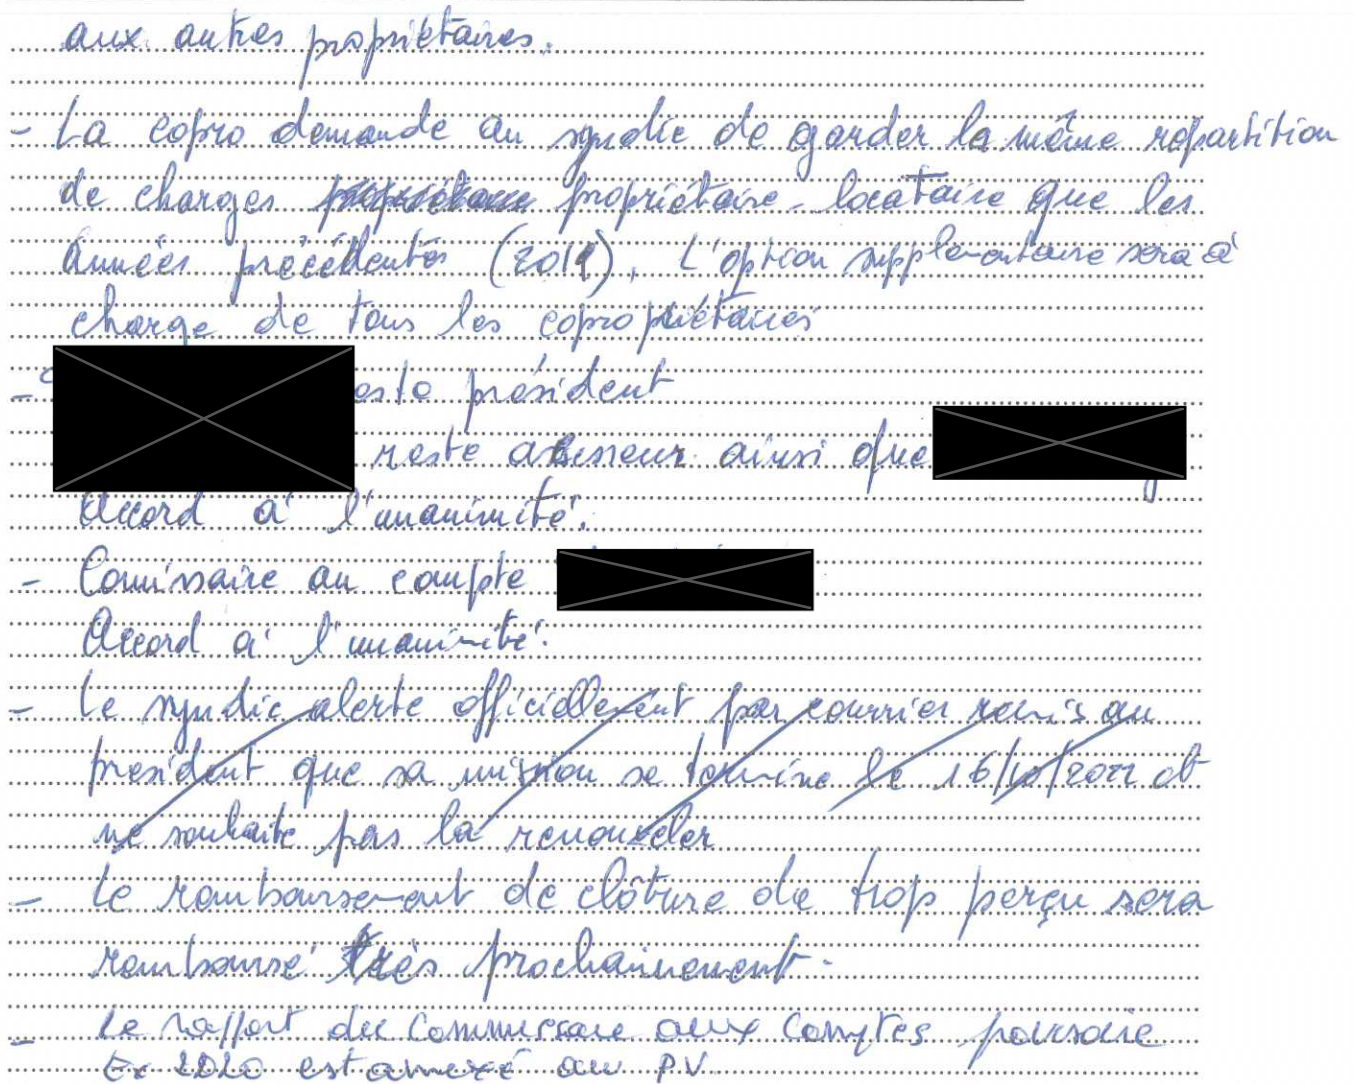 aux autres propriétaires.
- La copro demande au syndic de garder la même répartition
de charges propriétaire - locataire que les
années précédentes (2019). L'option supplémentaire sera à
charge de tous les copropriétaires
- este président
reste assesseur ainsi que
Accord à l'unanimité.
- Comissaire au compte
Accord à l'unanimité.
- Le syndic alerte officiellement par courrier remis au
président que sa mission se termine le 16/10/2022 et
ne souhaite pas la renouveler
- Le remboursement de clôture du trop perçu sera
remboursé très prochainement.
- Le rapport du Commissaire aux Comptes
Ex 2020 est annexé au PV